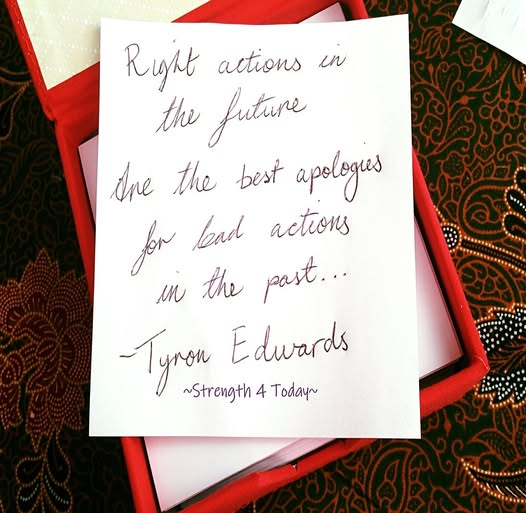 Right actions in
the future
Are the best apologies
for bad actions
in the past...
-Tyron Edwards
~Strength 4 Today~